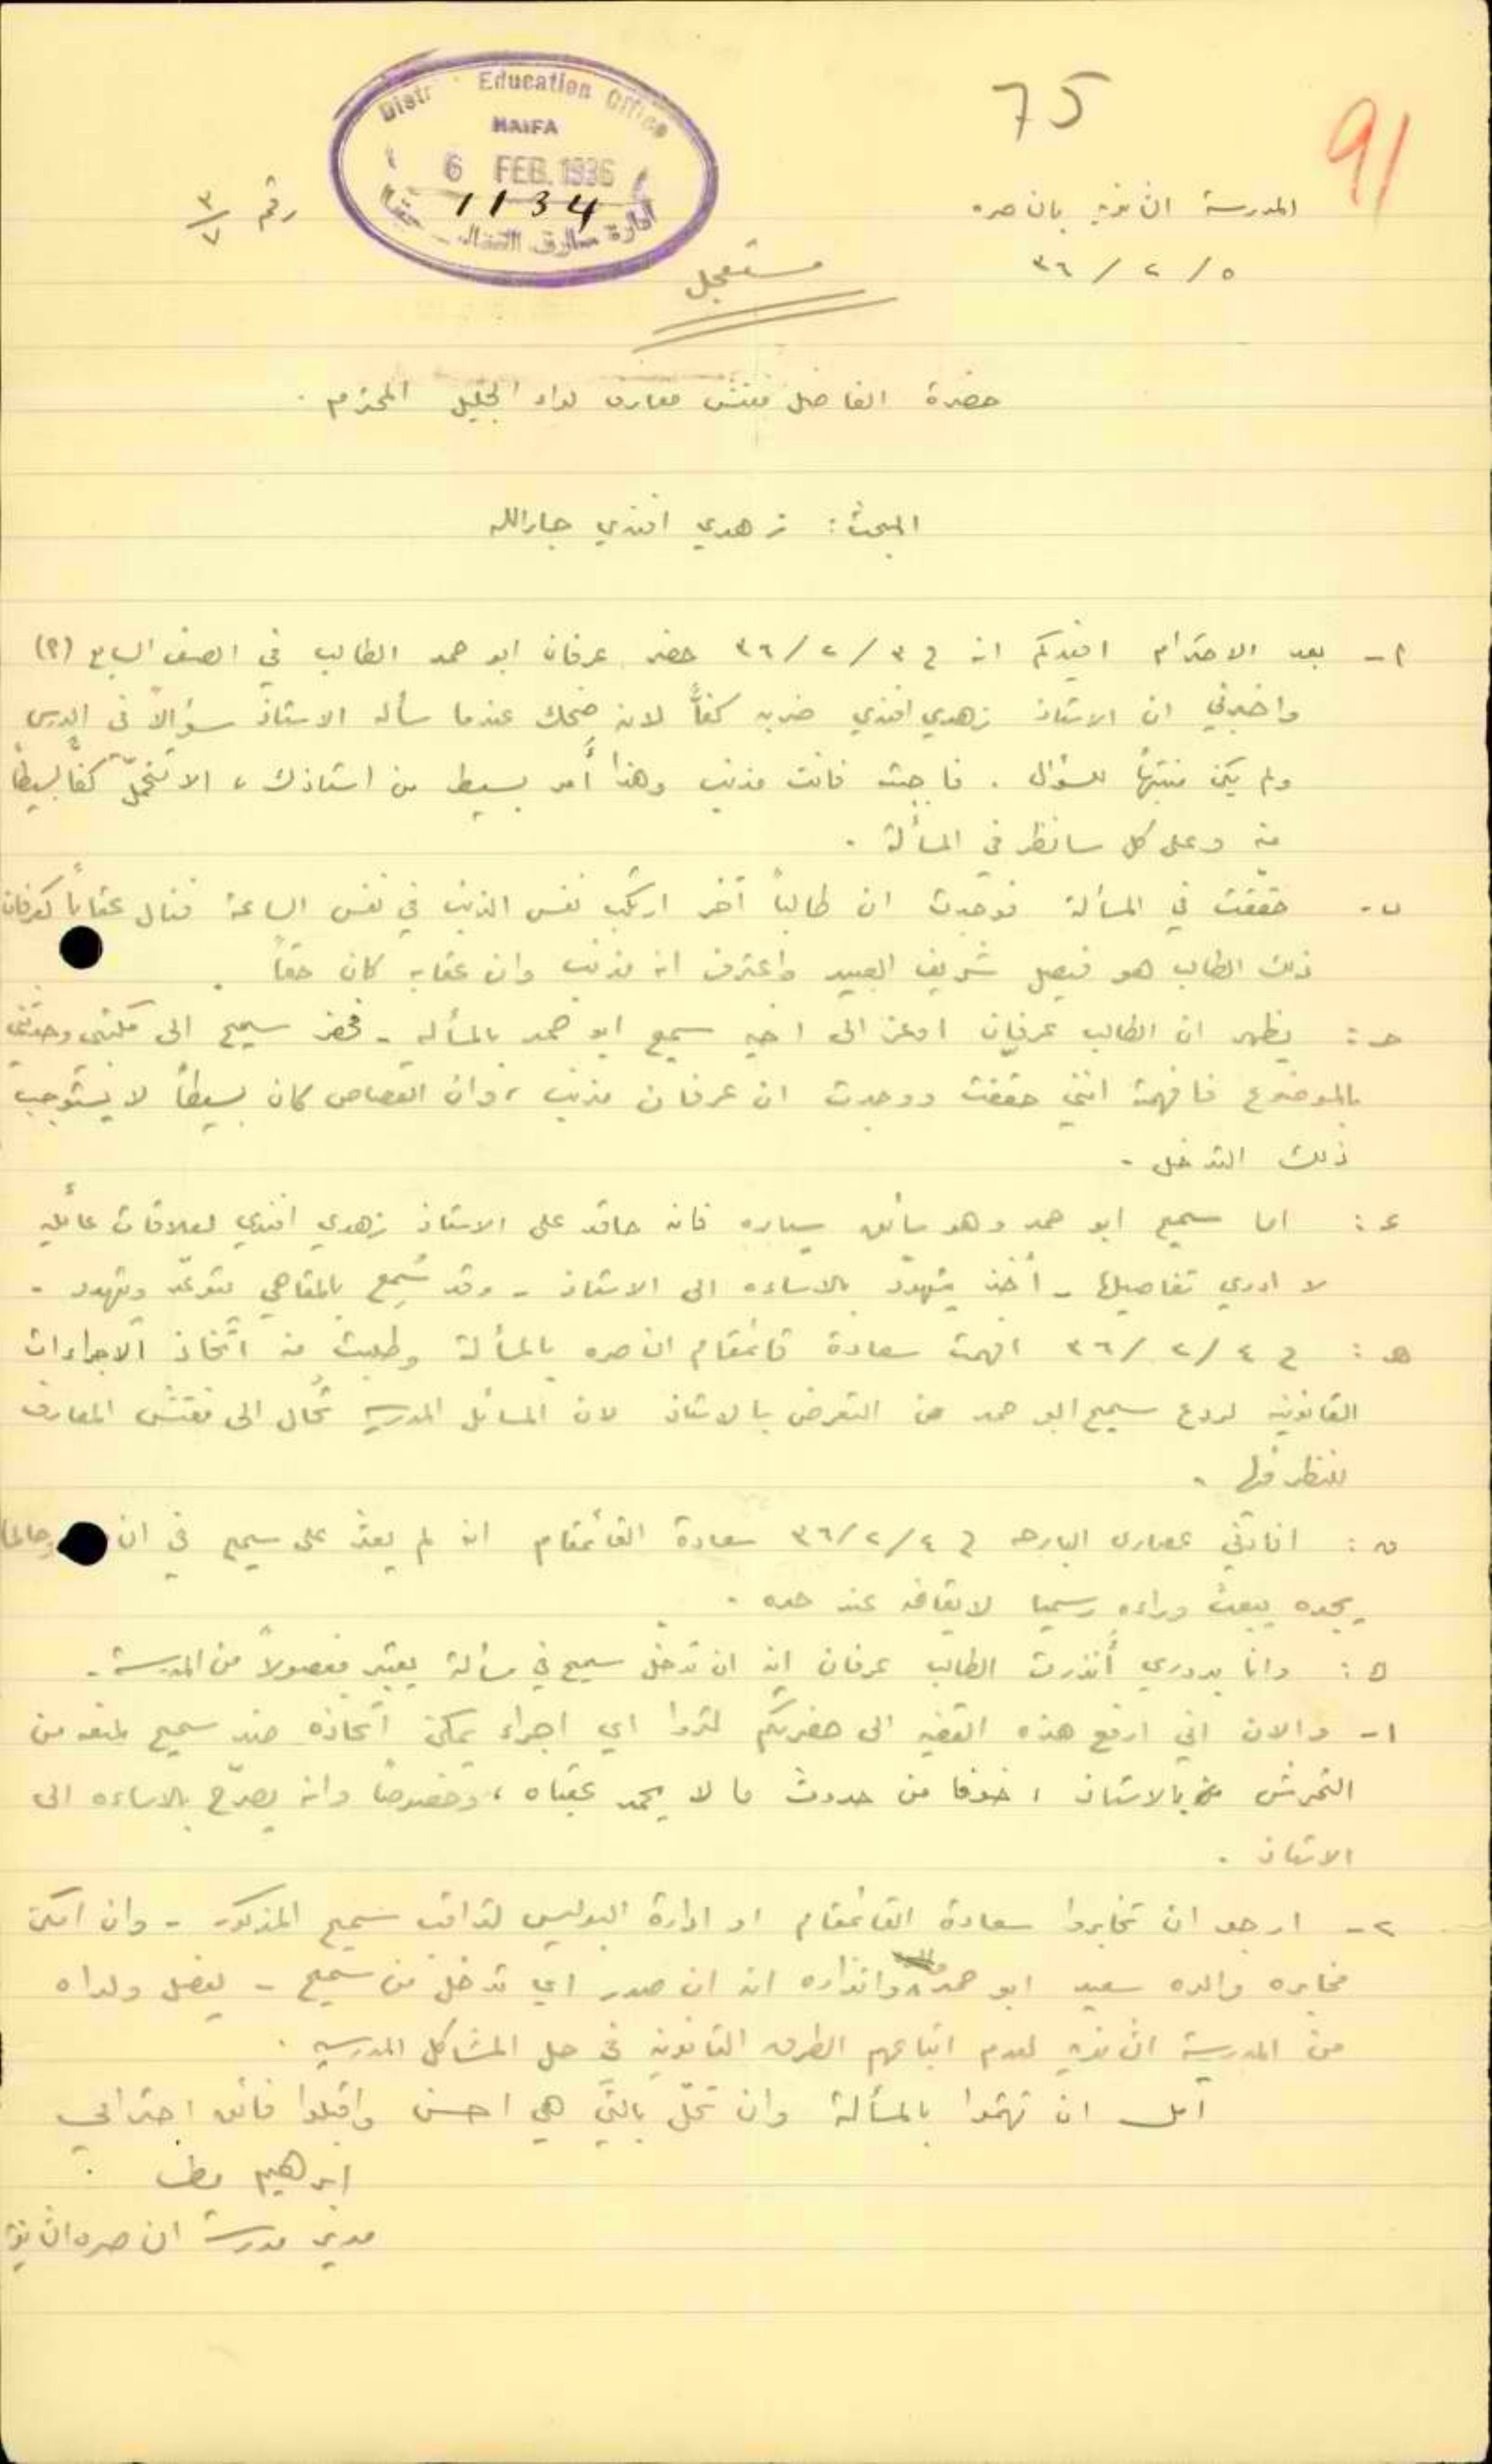 75
91
Distr Education Office
HAIFA
6 FEB. 1936
1134
ادارة معارف
المدرسة الثانويه بالناصره
رقم ٣/٧
٥/٢/٣٦
مستعجل
حضرة الفاضل مفتش معارف لواء الجليل المحترم .
المبحث : زهدي افندي جارالله
أ - بعد الاحترام افيدكم انه في ٣/٢/٣٦ حضر عرفان ابو حمد الطالب في الصف السابع (٢)
واخبرني ان الاستاذ زهدي افندي ضربه كفاً لانه ضحك عندما سأله الاستاذ سؤالاً في الدرس
ولم يكن منتبهاً للسؤال . فاجبته فانت مذنب وهذا أمر بسيط من استاذك ، الا تتحمل كفاً بسيطاً
منه وعلى كل سانظر في المسألة .
ب - حققت في المسألة فوجدت ان طالباً آخر ارتكب نفس الذنب في نفس الساعة فنال عقاباً كعرفان
ذلك الطالب هو فيصل شريف العبيد واعترف انه مذنب وان عقابه كان حقاً .
حـ : يظهر ان الطالب عرفان اوعز الى اخيه سميح ابو حمد بالمسأله - فحضر سميح الى مكتبي وحدثني
بالموضوع فافهمته انني حققت ووجدت ان عرفان مذنب ، وان القصاص كان بسيطاً لا يستوجب
ذلك التدخل -
ء : اما سميح ابو حمد وهو سائق سياره فانه حاقد على الاستاذ زهدي افندي لعلاقات عائليه
لا ادري تفاصيلها - أخذ يتهدد بالاساءه الى الاستاذ - وقد سُمع بالمقاهي يتوعّد ويتهدد -
هـ : في ٤/٢/٣٦ افهمت سعادة قائمقام الناصره بالمسألة وطلبت منه اتخاذ الاجراءات
القانونيه لردع سميح ابو حمد من التعرض بالاستاذ لان المسائل المدرسيه تُحال الى مفتش المعارف
للنظر فيها .
و : افادني عصارى البارحه في ٤/٢/٣٦ سعادة القائمقام انه لم يعثر على سميح في وحالما
يجده يبعث وراءه رسميا لايقافه عند حده .
ه : وانا بدوري أنذرت الطالب عرفان انه ان تدخل سميح في مسألة يعتبر مفصولاً من المدرسة -
١- والان اني ارفع هذه القضيه الى حضرتكم لتروا اي اجراء يمكن اتخاذه ضد سميح لمنعه من
التحرش بالاستاذ ، خوفا من حدوث ما لا يحمد عقباه ، وخصوصاً وانه يصرّح بالاساءه الى
الاستاذ .
٢- ارجو ان تخابروا سعادة القائمقام او ادارة البوليس لتراقب سميح المذكور - وان امكن
مخابره والده سعيد ابو حمد وانذاره انه ان صدر اي تدخل من سميح - يفصل ولداه
من المدرسة الثانويه لعدم اتباعهم الطرق القانونيه في حل المشاكل المدرسيه .
آمل ان تهتموا بالمسألة وان تحلّ بالتي هي احسن واقبلوا فائق احترامي
ابرهيم مطر
مدير مدرسة الناصره الثانويه